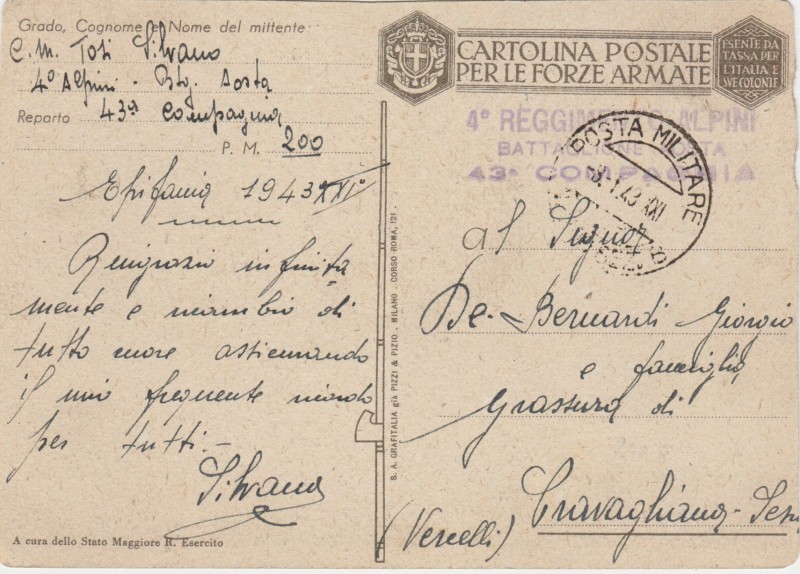 Grado, Cognome e Nome del mittente
C.M. Tosi Silvano
4º Alpini - Btg. Aosta
Reparto 43ª Compagnia
P. M. 200
Epifania 1943 XXIº
Ringrazio infinita
mente e ricambio di
tutto cuore assicurando
il mio frequente ricordo
per tutti.-
Silvano
A cura dello Stato Maggiore R. Esercito
S. A. GRAFITALIA già PIZZI & PIZIO . MILANO . CORSO ROMA, 121 .
CARTOLINA POSTALE
PER LE FORZE ARMATE
ESENTE DA
TASSA PER
L'ITALIA E
SUE COLONIE
4º REGGIMENTO ALPINI
BATTAGLIONE AOSTA
43ª COMPAGNIA
POSTA MILITARE
1.43 XXI
al Signor
De-Bernardi Giorgio
e famiglia
di
(Vercelli)